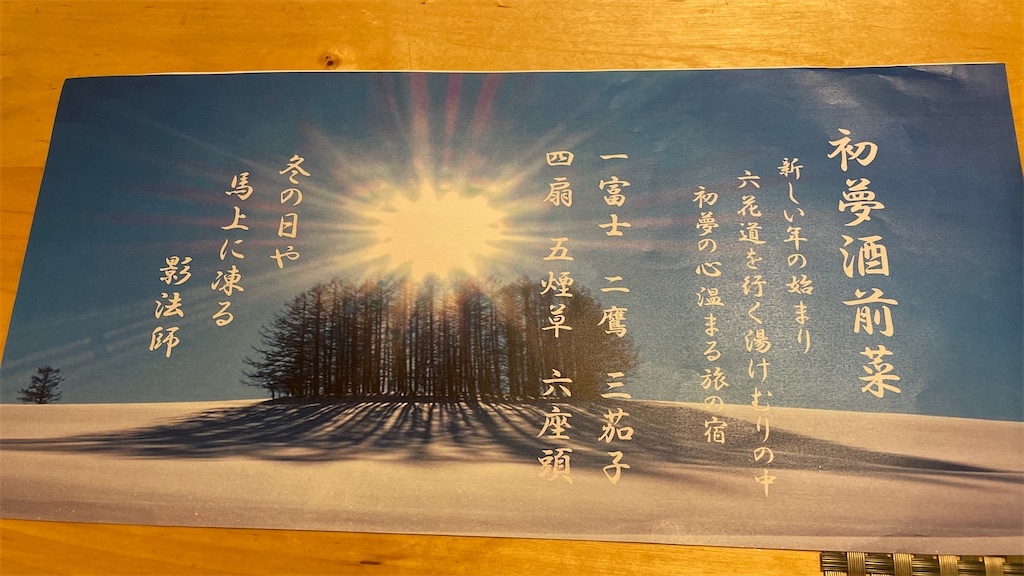 初夢酒前菜
新しい年の始まり
六花道を行く湯けむりの中
初夢の心温まる旅の宿
一富士 二鷹 三茄子
四扇 五煙草 六座頭
冬の日や
馬上に凍る
影法師